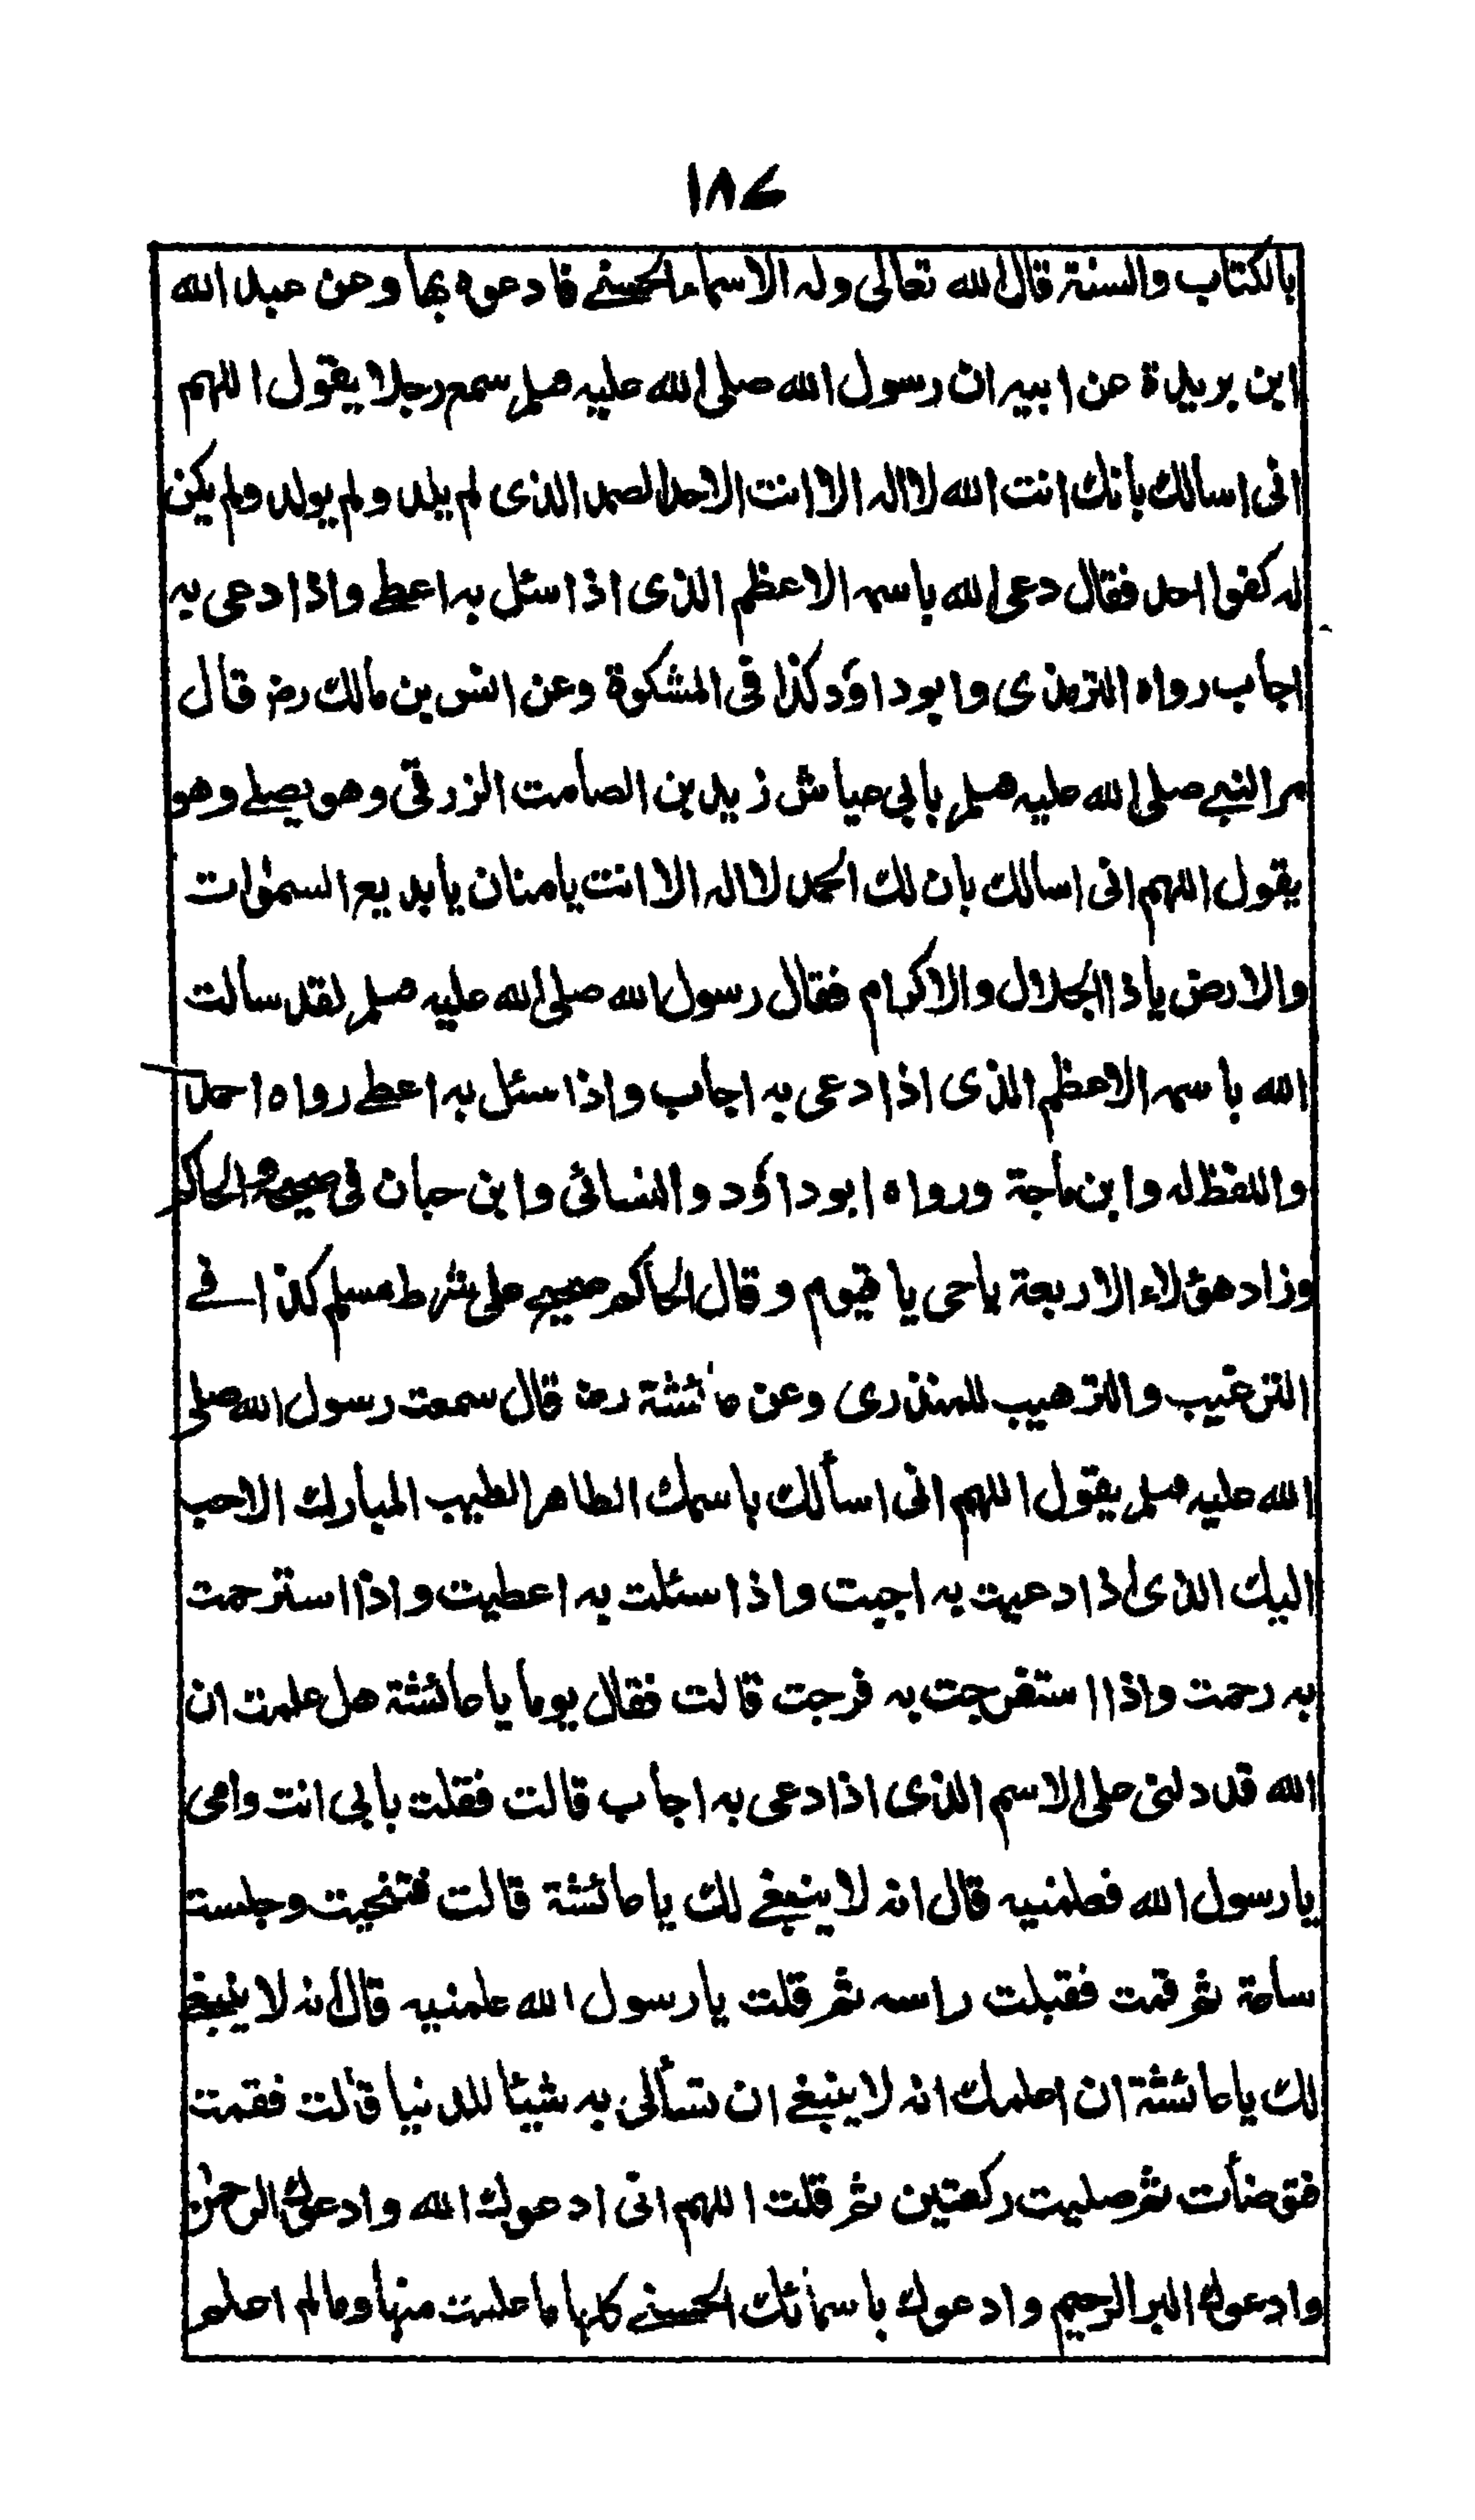 ١٨٧
بالكتاب والسنة قال الله تعالى وله الاسماء الحسنے فادعوه بها وعن عبد الله
ابن بريدة عن ابيه ان رسول الله صلى الله عليه وسلم سمع رجلا يقول اللهم
انى اسالك بانك انت الله لا اله الا انت الاحد الصمد الذى لم يلد ولم يولد ولم يكن
له كفوا احد فقال دعى الله باسمه الاعظم الذى اذا سئل به اعطے واذا دعى به
اجاب رواه الترمذى وابو داؤد كذا فى المشكوة وعن انس بن مالك رضـ قال
مر النبے صلى الله عليه وسلم بابى عياش زيد بن الصامت الزرقى وهو يصلے وهو
يقول اللهم انى اسالك بان لك الحمد لا اله الا انت يا منان يا بديع السمٰوات
والارض يا ذا الجلال والاكرام فقال رسول الله صلى الله عليه وسلم لقد سألت
الله باسمه الاعظم الذى اذا دعى به اجاب واذا سئل به اعطے رواه احمد
واللفظ له وابن ماجة ورواه ابو داؤد والنسائى وابن حبان فى صحيحه والحاكم
وزاد هؤلاء الاربعة يا حى يا قيوم وقال الحاكم صحيح على شرط مسلم كذا فے
الترغيب والترهيب للمنذرى وعن عائشة رضـ قال سمعت رسول الله صلى
الله عليه وسلم يقول اللهم انى اسألك باسمك الطاهر الطيب المبارك الاحب
اليك الذى اذا دعيت به اجبت واذا سئلت به اعطيت واذا استرحمت
به رحمت واذا استفرجت به فرجت قالت فقال يوما يا عائشة هل علمت ان
الله قد دلنى على الاسم الذى اذا دعى به اجاب قالت فقلت بابى انت وامى
يا رسول الله فعلمنيه قال انه لا ينبغے لك يا عائشة قالت فتنحيت وجلست
ساعة ثم قمت فقبلت راسه ثم قلت يا رسول الله علمنيه قال انه لا ينبغے
لك يا عائشة ان اعلمك انه لا ينبغے ان تسألى به شيئا للدنيا قالت فقمت
فتوضأت ثم صليت ركعتين ثم قلت اللهم انى ادعوك الله وادعوك الرحمٰن
وادعوك البر الرحيم وادعوك باسمائك الحسنے كلها ما علمت منها وما لم اعلم